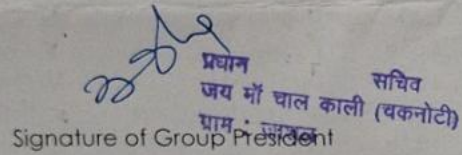 प्रधान सचिव
जय माँ चाल काली (चकनोटी)
ग्राम :
Signature of Group President